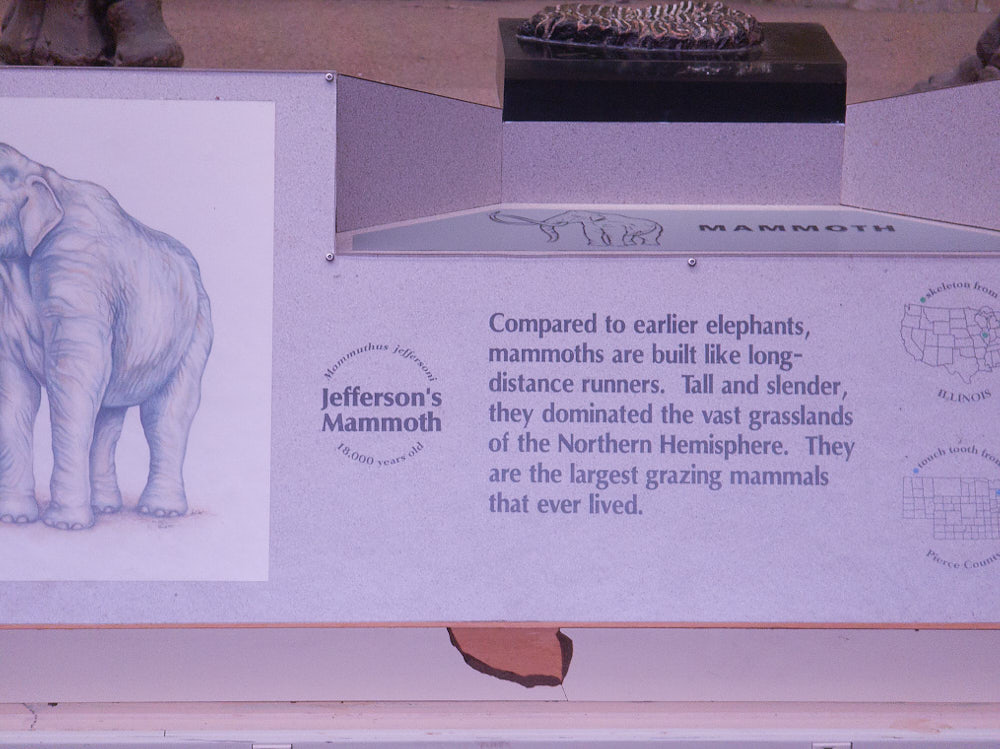 MAMMOTH
Mammuthus jeffersoni
Jefferson's
Mammoth
18,000 years old
Compared to earlier elephants,
mammoths are built like long-
distance runners. Tall and slender,
they dominated the vast grasslands
of the Northern Hemisphere. They
are the largest grazing mammals
that ever lived.
skeleton from
ILLINOIS
touch tooth from
Pierce County